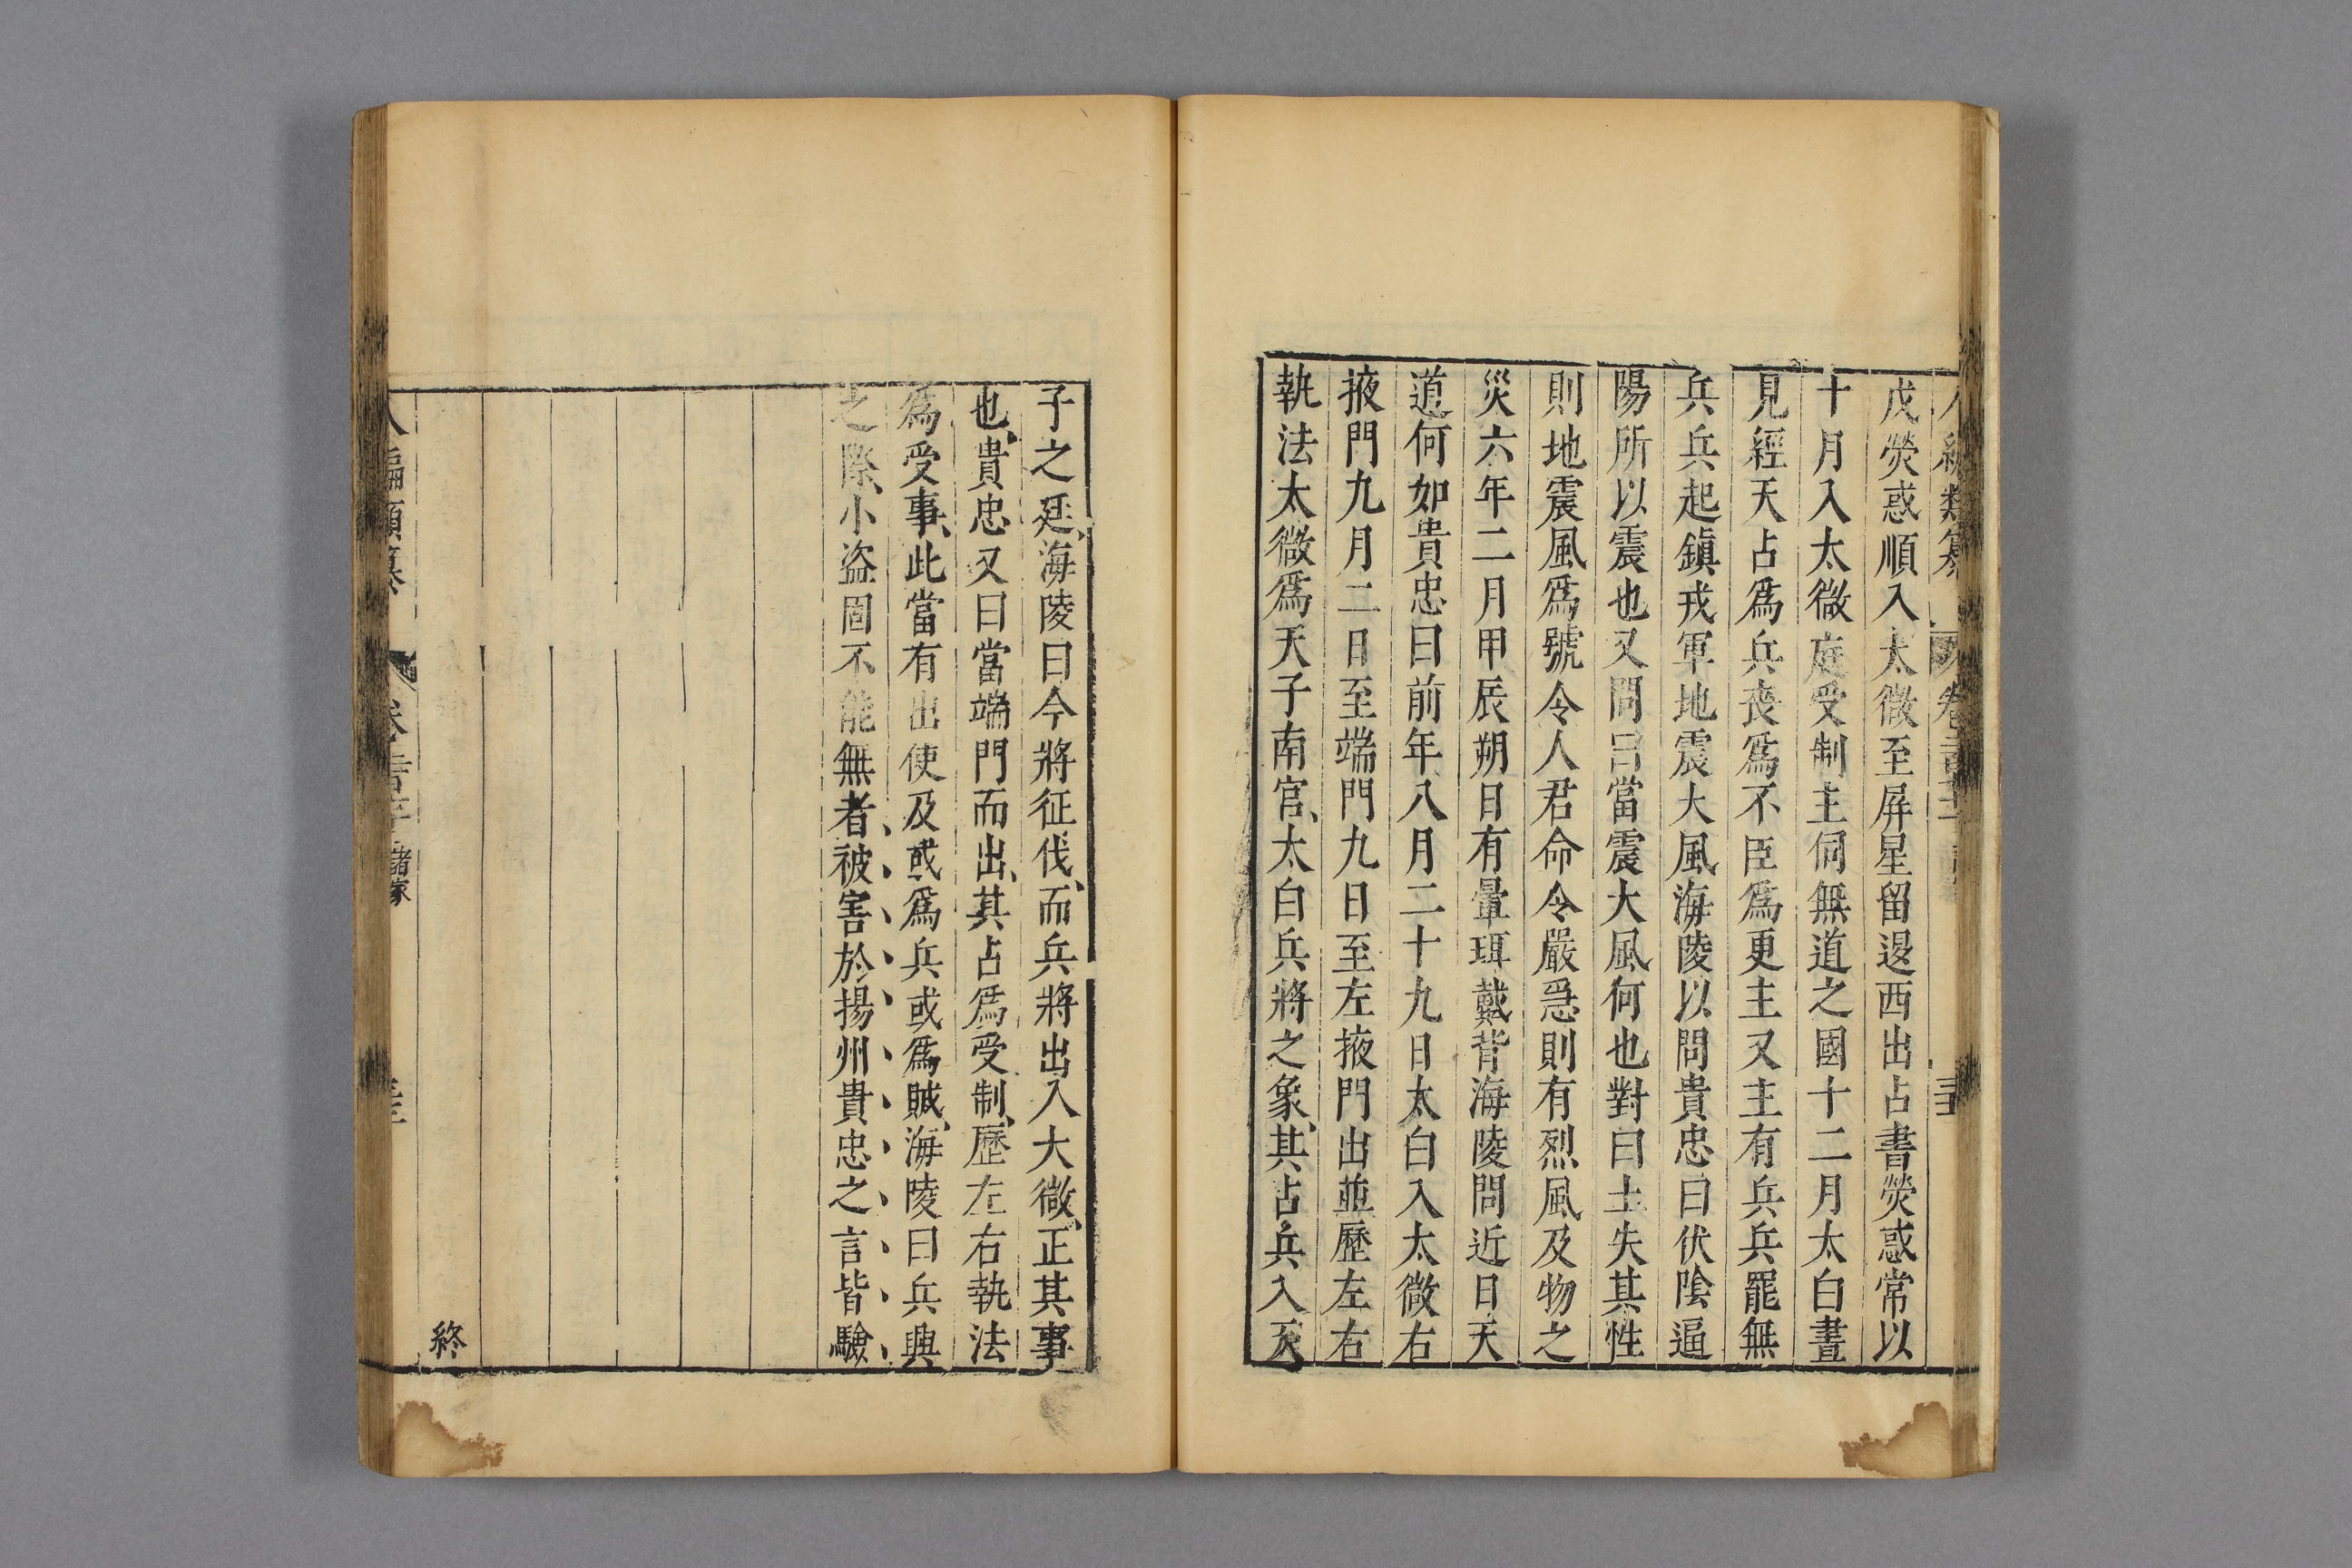 戊熒惑順入太微至屏星留退西出占書熒惑常以
十月入太微庭受制主伺無道之國十二月太白晝
見經天占為兵喪為不臣為更主又主有兵兵罷無
兵兵起鎮戎軍地震大風海陵以問貴忠曰伏陰逼
陽所以震也又問曰當震大風何也對曰土失其性
則地震風為號令人君命令嚴急則有烈風及物之
災六年二月甲辰朔日有暈珥戴背海陵問近日天
道何如貴忠曰前年八月二十九日太白入太微右
掖門九月二日至端門九日至左掖門出並歷左右
執法太微為天子南宮、太白兵將之象、其占兵入天
子之廷、海陵曰今將征伐、而兵將出入大微、正其事
也、貴忠又曰當端門而出、其占為受制、歷左右執法
為受事、此當有出使及或為兵或為賊、海陵曰兵興
之際、小盜固不能無者、被害於揚州貴忠之言皆驗
終
八編類纂 卷 諸家